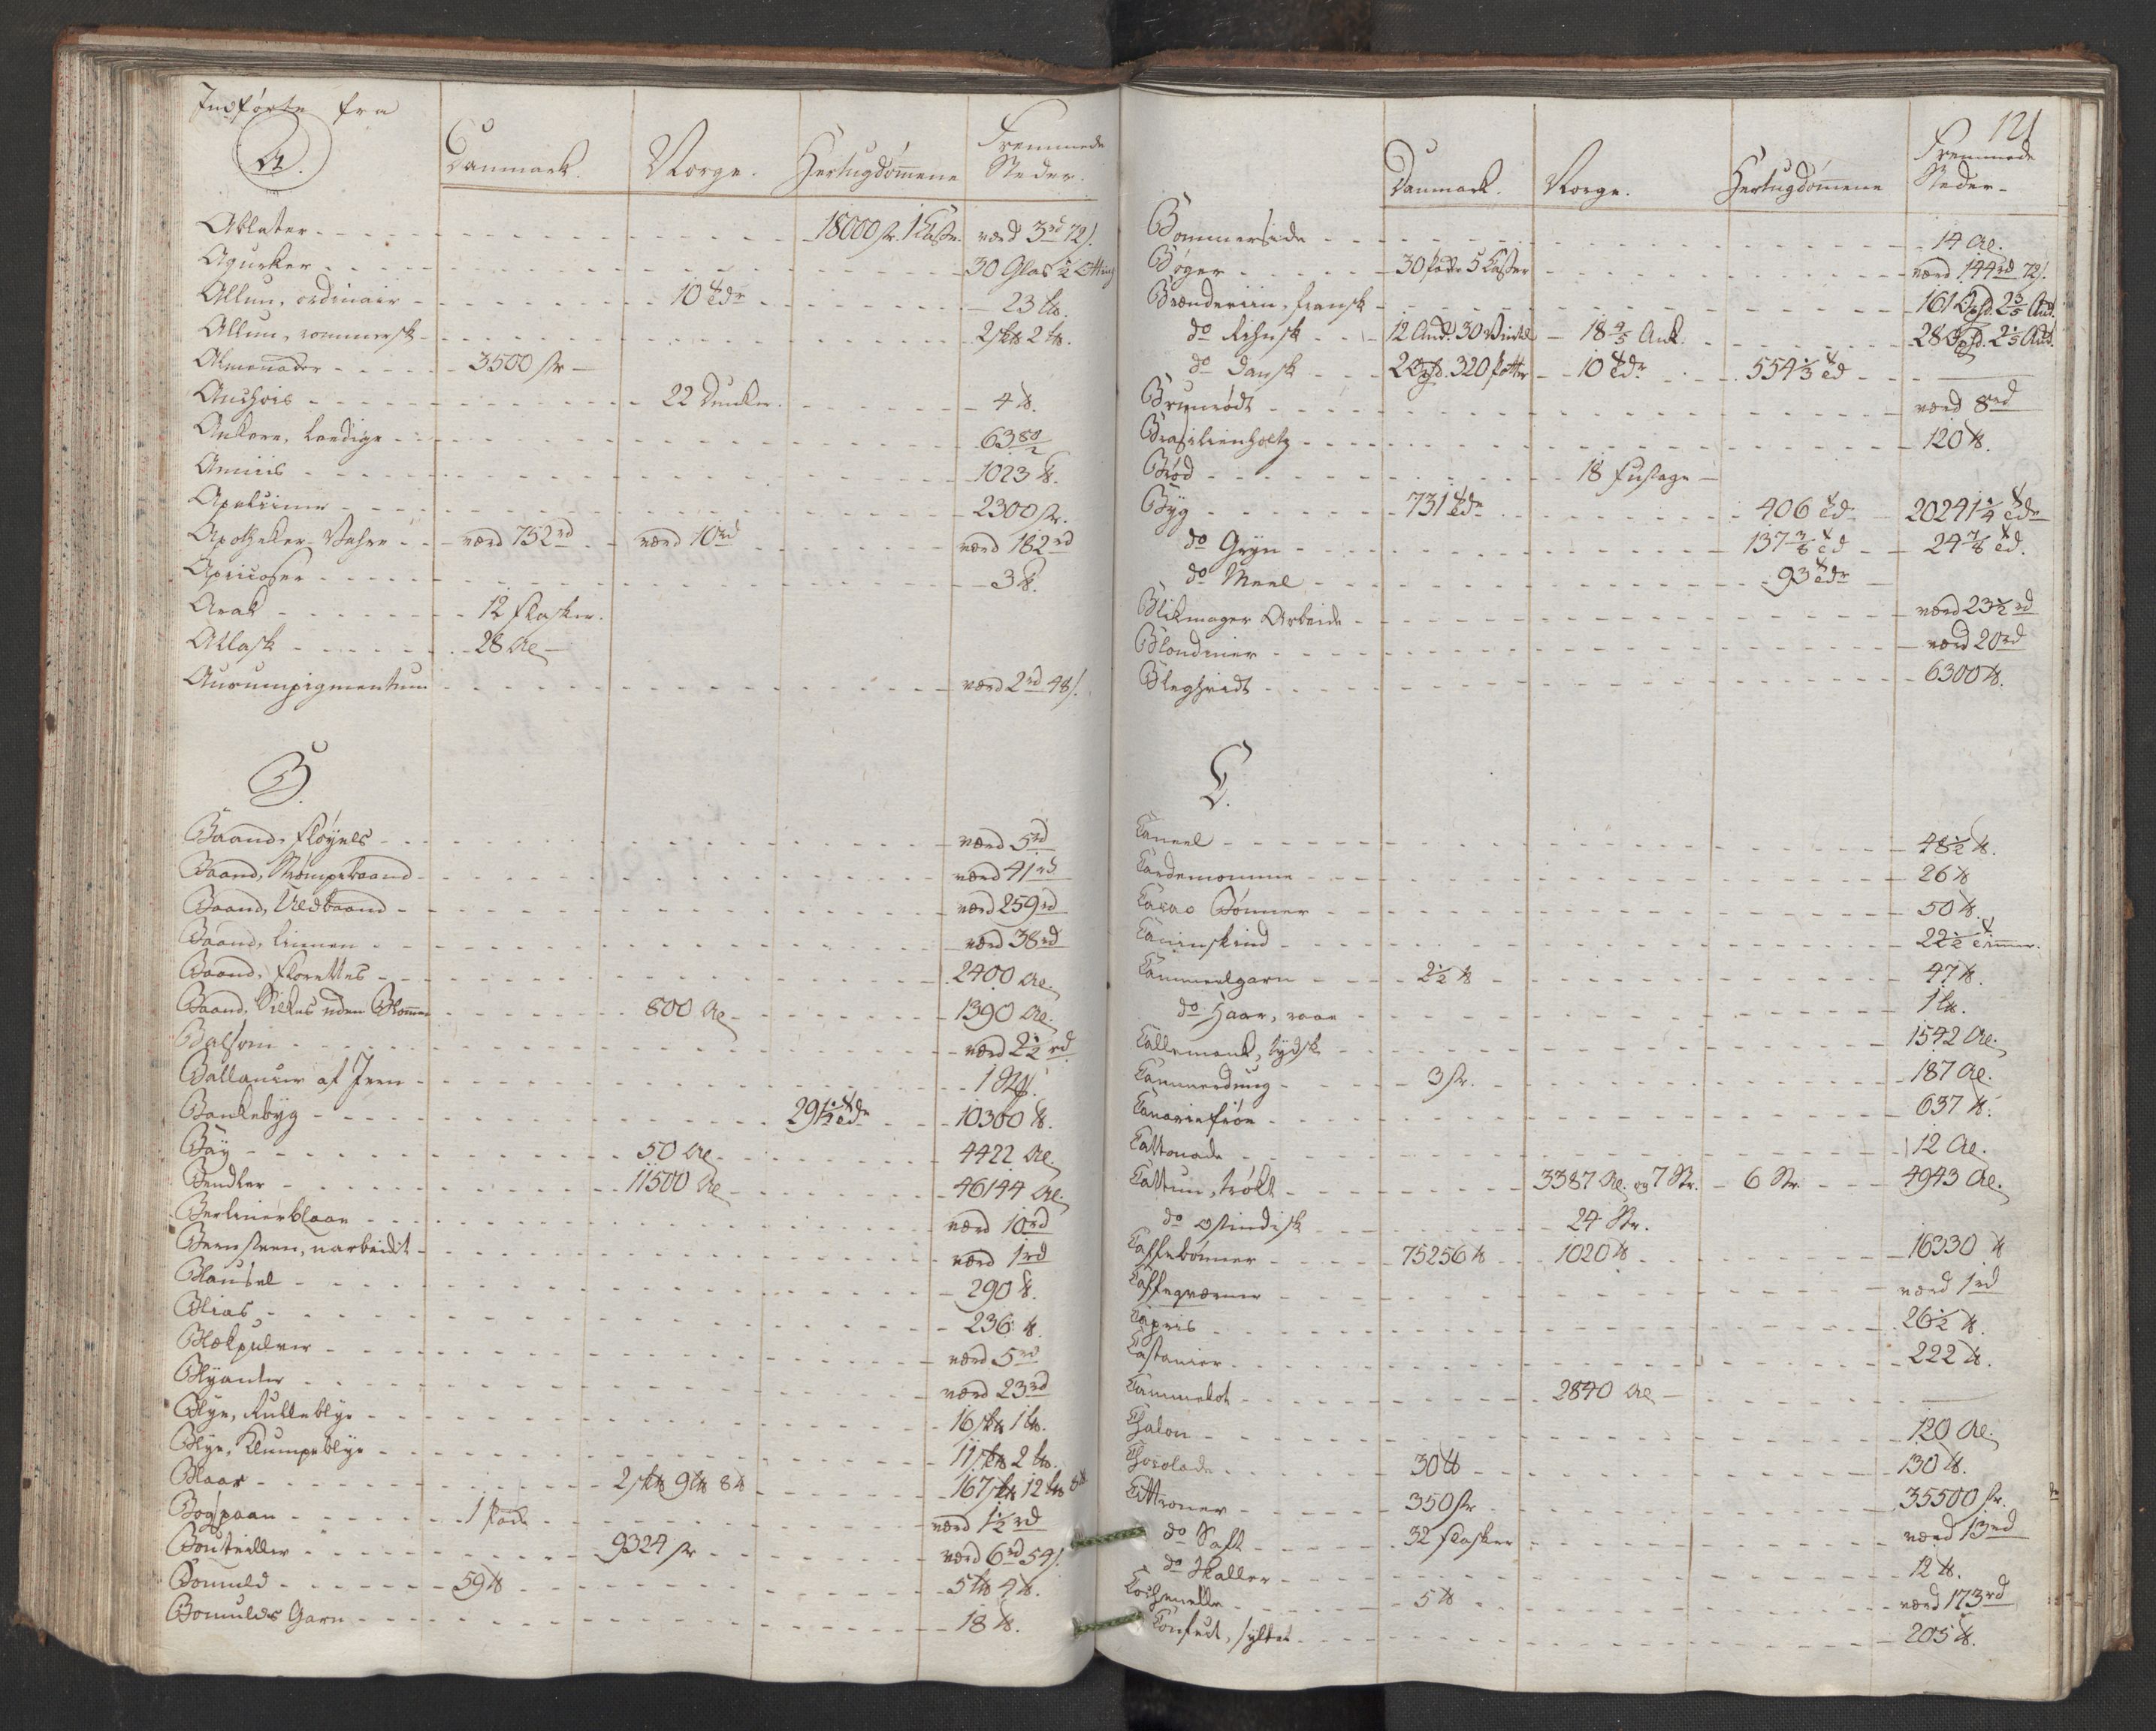 Indførte fra
A.
Danmark. Norge. Hertugdømmene Fremmede Steder.
Ablater 18000 st. 1 Kaste. værd 3rd 72s.
Agurker 30 Glas ½ Otting
Allun, ordinair 10 Tdr 23 L℔.
Allun, rommersk 2 sk℔ 2 L℔.
Almenader 3500 st
Anchois 22 Dunker. 4 ℔.
Ankere, leedige 63
Aniis 1023 ℔.
Apelsiner 2300 st.
Apotheker-Vahre værd 752rd værd 10rd værd 182rd
Apricoser 3 ℔.
Arak 12 flasker.
Atlask 28 Al
Aurumpigmentum værd 2rd 48s.
B.
Baand, fløyels værd 5rd
Baand, Strømpebaand værd 41rd
Baand, Uldbaand værd 259rd
Baand, linnen værd 38rd
Baand, florettes 2400 Al.
Baand, Silkes uden Blommer 800 Al 1390 Al.
Balsom værd 2½ rd
Ballancer af Jern 1
Bankebyg 29½ Tdr 10300 ℔.
Bay 50 Al 4422 Al.
Bendler 11500 Al 46144 Al.
Berlinerblaae værd 10rd
Bernsteen, uarbeidt værd 1rd
Blaüsel 290 ℔.
Blias 236 ℔.
Blekpulver værd 5rd
Blyanter værd 23rd
Blye, Rulleblye 16 sk℔ 1 L℔.
Blye, Klumpeblye 11 sk℔ 2 L℔.
Blaar 2 sk℔ 9 L℔ 8 ℔ 167 sk℔ 12 L℔ 8 ℔
Bogspaan 1 pak værd 1½ rd
Bouteiller 9324 st værd 6rd 54s.
Bomuld 59 ℔ 5 L℔ 4 ℔.
Bomulds Garn 18 ℔.
121
Danmark. Norge. Hertugdømmene Fremmede Steder
Bommerside 14 Al.
Bøger 30 pakr 5 Kaster værd 144rd 72s.
Brændeviin, fransk 161 Oxhd. 2 3/5 Ank.
do Rhinsk 12 Ank. 30 Viertel 18 4/5 Ank. 28 Oxhd. 2 1/5 Ank.
do Dansk 2 Oxhd. 320 potter 10 Tdr 554⅓ Td
Brunrødt værd 8rd
Brasilienholtz 120 ℔.
Brød 18 Fustage
Byg 731 Tdr 406 Td 20241¼ Tdr
do Gryn 137 3/8 Td 24 7/8 Td.
do Meel 93 Tdr
Blikmager Arbeide værd 23½ rd
Blondiner værd 20rd
Bleghvidt 6300 ℔.
C.
Caneel 48½ ℔.
Cardemomme 26 ℔
Cacao Bønner 50 ℔.
Caninskind 22½ Timmer.
Cammeelgarn 2½ ℔ 47 ℔.
do Haar, raae 1 L℔.
Callemank, tydsk 1542 Al.
Cammerdung 3 st. 187 Al.
Canariefrøe 637 ℔.
Cattonade 12 Al.
Cattun, trykt 3387 Al. og 7 St. 6 St. 4943 Al.
do ostindisk 24 St.
Caffebønner 75256 ℔ 1020 ℔ 16330 ℔
Caffeqværner værd 1rd
Capris 26½ ℔.
Castanier 222 ℔.
Cammelot 2840 Al
Chalon 120 Al.
Chocolade 30 ℔ 130 ℔.
Cittroner 350 st 35500 st.
do Saft 32 flasker værd 13rd
do Skaller 12 ℔.
Cochenelle 5 ℔ værd 173rd
Confect, syltet 205 ℔.